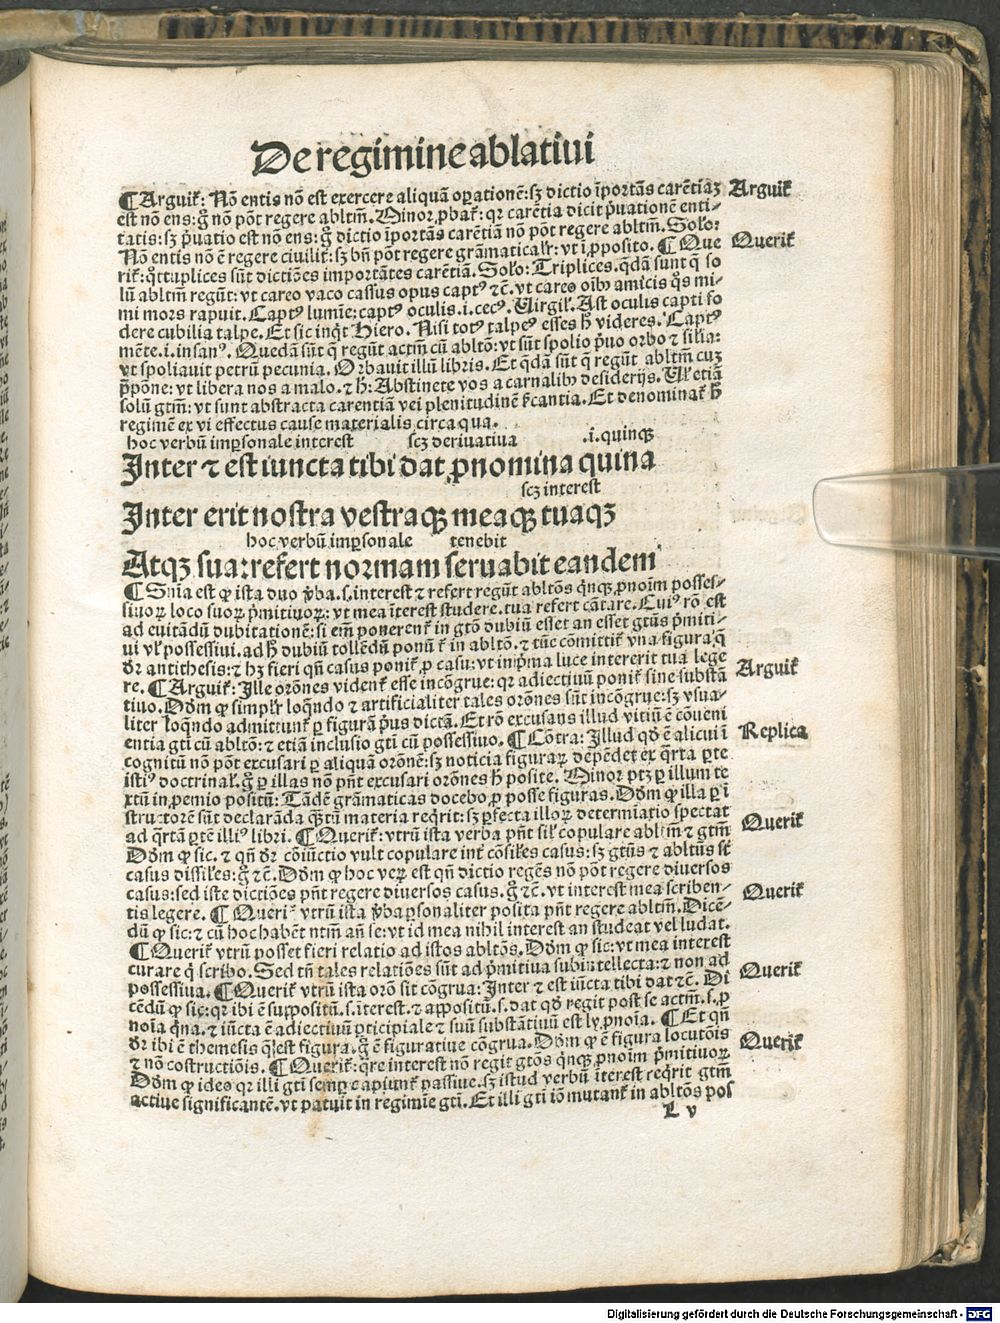 De regimine ablatiui
¶ Arguit̃: Nõ entis nõ est exercere aliquã oꝑationẽ: sꝫ dictio ĩportãs carẽtiaꝫ Arguit̃
est nõ ens: gͦ nõ põt regere abltm̃. Minor ꝓbat̃: qꝛ carẽtia dicit p̃uationẽ enti-
tatis: sꝫ p̃uatio est nõ ens: gͦ dictio ĩportãs carẽtiã nõ põt regere abltm̃. Solo:
Nõ entis nõ ẽ regere ciuilit̃: sꝫ bñ põt regere grãmaticalr̃: vt ĩ ꝓposito. ¶ Que Querit̃
rit̃: q̊ttuplices sũt dictiões importãtes carẽtiã. Solo: Triplices. q̃dã sunt q̃ so
lũ abltm̃ regũt: vt careo vaco cassus opus captꝰ ⁊c̃. vt careo oĩbꝰ amicis q̊s mi-
mi mors rapuit. Captꝰ lumĩe: captꝰ oculis .i. cecꝰ. Virgil̃. Ast oculis capti fo
dere cubilia talpe. Et sic inq̃t Hiero. Nisi totꝰ talpeꝰ esses h̃ videres. Captꝰ
mẽte .i. insanꝰ. Quedã sũt q̃ regũt actm̃ cũ abltõ: vt sũt spolio p̃uo orbo ⁊ silia:
vt spoliauit petrũ pecunia. Orbauit illũ libris. Et q̃dã sũt q̃ regũt abltm̃ cuꝫ
p̃põne: vt libera nos a malo. ⁊ h̃: Abstinete vos a carnalibꝰ desiderijs. Vl̃ etiã
solũ gtm̃: vt sunt abstracta carentiã vel plenitudinẽ s̃cantia. Et denominat̃ h̃
regimẽ ex vi effectus cause materialis circa qua.
hoc verbũ imꝑsonale interest scꝫ deriuatiua .i. quinqꝫ
Inter ⁊ est iuncta tibi dat ꝓnomina quina
scꝫ interest
Inter erit nostra vestraqꝫ meaqꝫ tuaqꝫ
hoc verbũ imꝑsonale tenebit
Atqꝫ sua: refert normam seruabit eandem
¶ Snĩa est ꝙ ista duo v̾ba .s. interest ⁊ refert regũt abltõs q̃nqꝫ ꝓnoĩm posses-
siuoꝝ loco suoꝝ p̃mitiuoꝝ: vt mea ĩterest studere. tua refert cãtare. Cuiꝰ rõ est
ad euitãdũ dubitationẽ: si em̃ ponerent̃ in gtõ dubiũ esset an esset gtũs p̃miti-
ui vl̃ possessiui. ad h̃ dubiũ tollẽdũ ponũt̃ in abltõ. ⁊ tũc cõmittit̃ vna figura q̃
dr̃ antithesis: ⁊ hꝫ fieri qñ casus ponit̃ ꝓ casu: vt in p̃ma luce intererit tua lege
re. ¶ Arguit̃: Ille orõnes vident̃ esse incõgrue: qꝛ adiectiuũ ponit̃ sine substã Arguit̃
tiuo. Dõm ꝙ simplr̃ loq̃ndo ⁊ artificialiter tales orõnes sũt incõgrue: sꝫ vsua-
liter loq̃ndo admittunt̃ ꝑ figurã p̃us dictã. Et rõ excusans illud vitiũ ẽ cõueni
entia gti cũ abltõ: ⁊ etiã inclusio gti cũ possessiuo. ¶ Cõtra: Illud qd̃ ẽ alicui ĩ Replica
cognitũ nõ põt excusari ꝑ aliquã orõnẽ: sꝫ noticia figuraꝝ depẽdet ex q̃rta ꝑte
istiꝰ doctrinal̃. gͦ ꝑ illas nõ pñt excusari orõnes h̃ posite. Minor ptꝫ ꝑ illum te
xtũ in ꝓemio positũ: Tãdẽ grãmaticas docebo ꝓ posse figuras. Dõm ꝙ illa ꝑ ĩ
structorẽ sũt declarãda q̃tũ materia req̃rit: sꝫ ꝑfecta illoꝝ determĩatio spectat
ad q̃rtã ꝑtẽ illiꝰ libri. ¶ Querit̃: vtrũ ista verba pñt sil̃ copulare abltm̃ ⁊ gtm̃ Querit̃
Dõm ꝙ sic. ⁊ qñ dr̃ cõiũctio vult copulare int̃ cõsil̃es casus: sꝫ gtũs ⁊ abltũs st̃
casus dissil̃es: gͦ ⁊c̃. Dõm ꝙ hoc veꝝ est qñ dictio regẽs nõ põt regere diuersos
casus: sed iste dictiões pñt regere diuersos casus. gͦ ⁊c̃. vt interest mea scriben- Querit̃
tis legere. ¶ Querit̃ vtrũ ista v̾ba ꝑsonaliter posita pñt regere abltm̃. Dicẽ-
dũ ꝙ sic: ⁊ cũ hoc habẽt ntm̃ añ se: vt id mea nihil interest an studeat vel ludat.
¶ Querit̃ vtrũ posset fieri relatio ad istos abltõs. Dõm ꝙ sic: vt mea interest
curare q̃ scribo. Sed tñ tales relatiões sũt ad p̃mitiua subintellecta: ⁊ non ad Querit̃
possessiua. ¶ Querit̃ vtrũ ista orõ sit cõgrua: Inter ⁊ est iũcta tibi dat ⁊c̃. Di
cẽdũ ꝙ sic: qꝛ ibi ẽ suppositũ .s. iterest. ⁊ appositũ .s. dat qd̃ regit post se actm̃ .s. ꝓ
noĩa q̃na. ⁊ iũcta ẽ adiectiuũ ꝑticipiale ⁊ suũ substãtiuũ est ly ꝓnoĩa. ¶ Et qñ
dr̃ ibi ẽ themesis q̃ est figura. gͦ ẽ figuratiue cõgrua. Dõm ꝙ ẽ figura locutõis Querit̃
⁊ nõ costructiõis. ¶ Querit̃: q̃re interest nõ regit gtõs q̃nqꝫ ꝓnoĩm p̃mitiuoꝝ
Dõm ꝙ ideo qꝛ illi gti semꝑ capiunt̃ passiue. sꝫ istud verbũ iterest reqr̃it gtm̃
actiue significantẽ. vt patuit in regimĩe gti. Et illi gti iõ mutant̃ in abltõs pos
L v
Digitalisierung gefördert durch die Deutsche Forschungsgemeinschaft - DFG